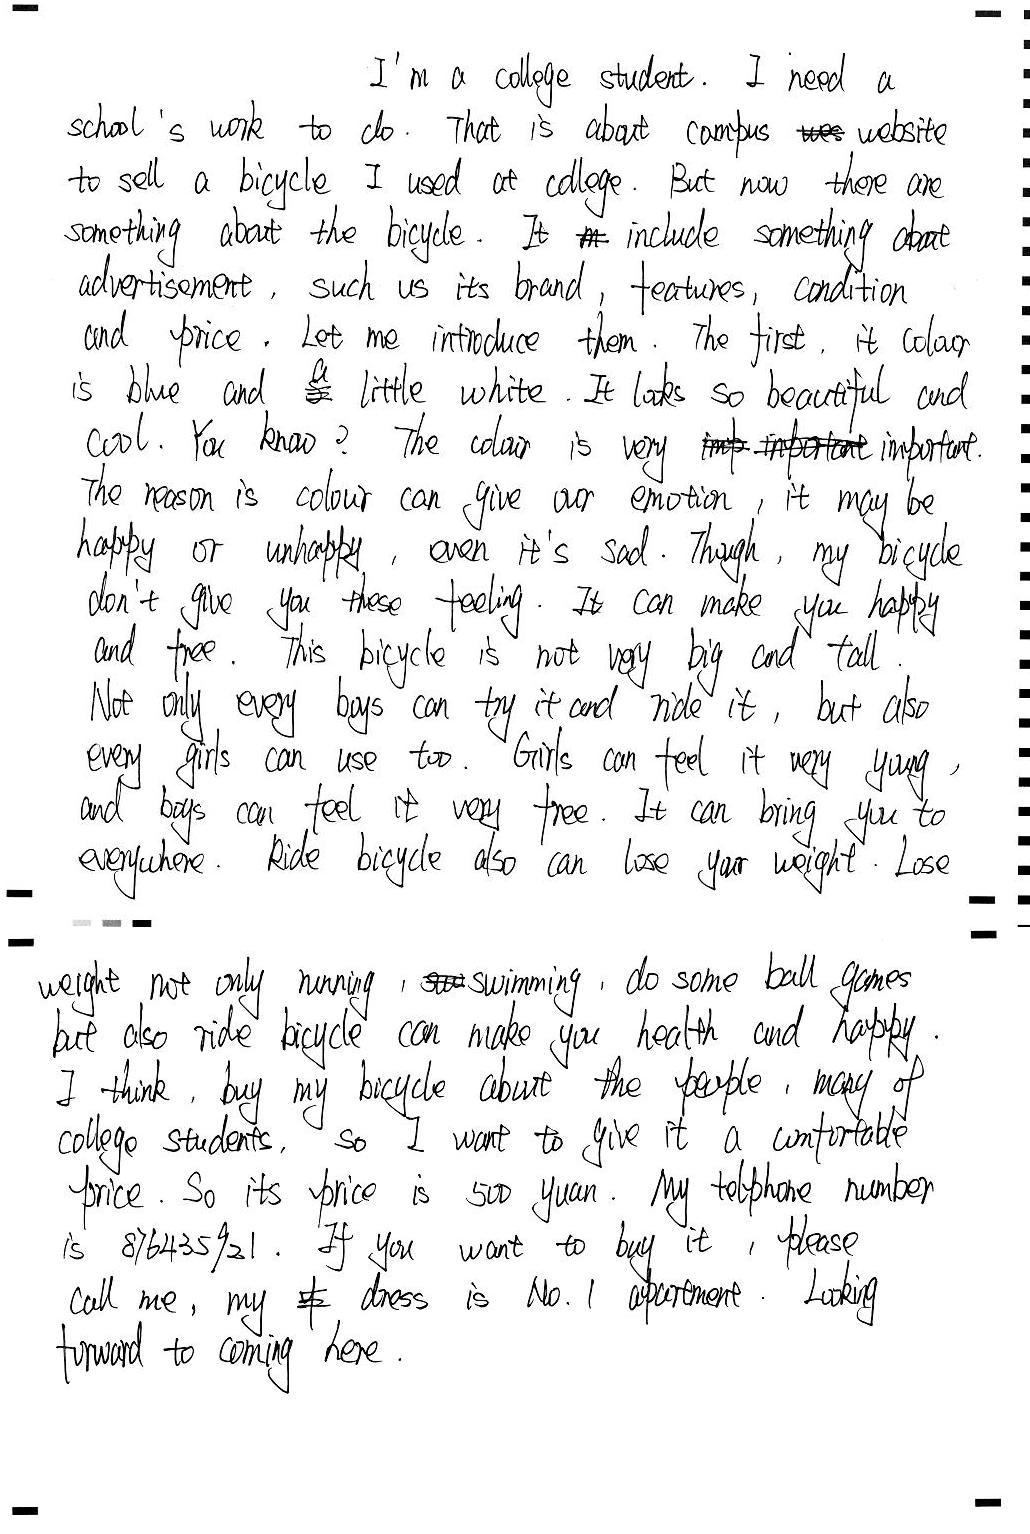 I'm a college student. I need a
school's work to do. That is about campus website
to sell a bicycle I used at college. But now there are
something about the bicycle. It include something about
advertisement, such us its brand, features, condition
and price. Let me introduce them. The first, it colour
is blue and a little white. It looks so beautiful and
cool. You know? The colour is very important.
The reason is colour can give our emotion, it may be
happy or unhappy, even it's sad. Though, my bicycle
don't give you these feeling. It can make you happy
and free. This bicycle is not very big and tall.
Not only every boys can try it and ride it, but also
every girls can use too. Girls can feel it very young,
and boys can feel it very free. It can bring you to
everywhere. Ride bicycle also can lose your weight. Lose
weight not only running, swimming, do some ball games
but also ride bicycle can make you health and happy.
I think, buy my bicycle about the people, many of
college students, so I want to give it a comfortable
price. So its price is 500 yuan. My telphone number
is 876435921. If you want to buy it, please
call me, my dress is No.1 apartment. Looking
forward to coming here.